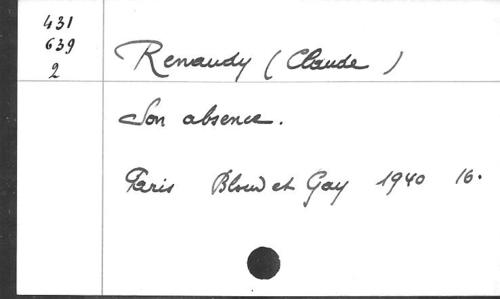 431
639
2
Renaudy (Claude)
Son absence.
Paris Bloud et Gay 1940 16.